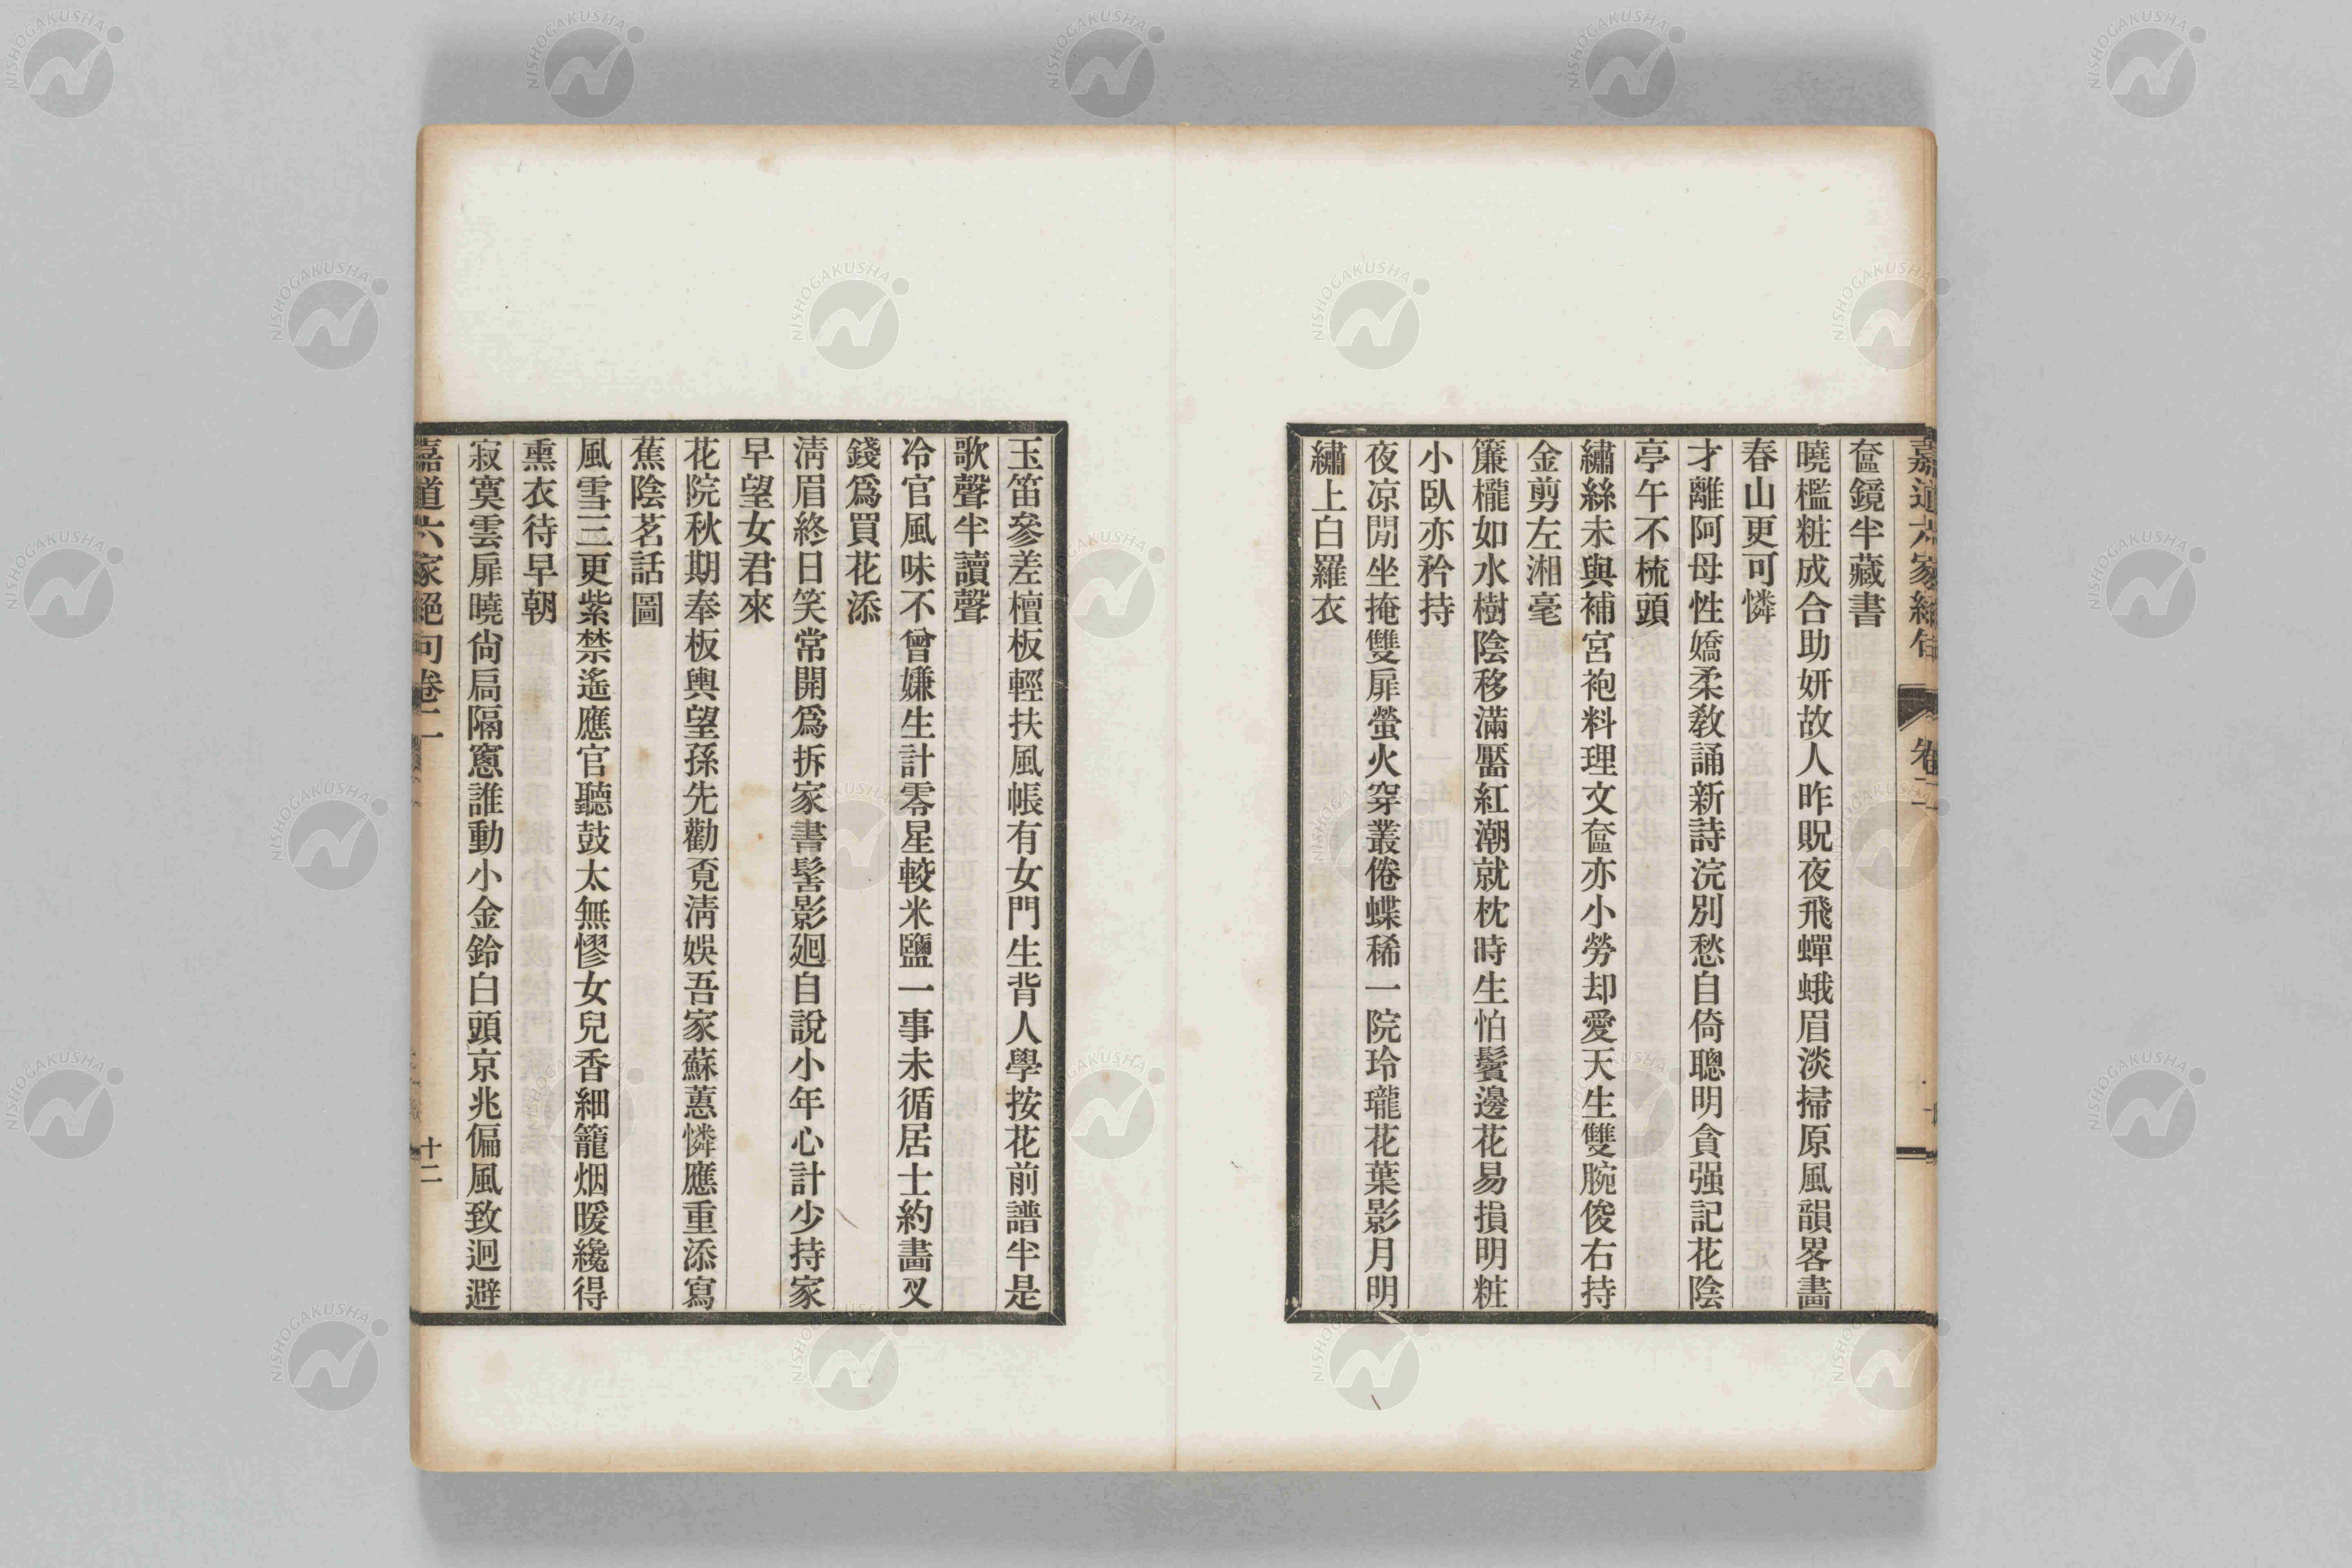 嘉道六家絕句
卷二
奩鏡半藏書
曉檻粧成合助妍故人昨貺夜飛蟬蛾眉淡掃原風韻畧畫
春山更可憐
才離阿母性嬌柔敎誦新詩浣別愁自倚聰明貪强記花陰
亭午不梳頭
繡絲未與補宮袍料理文奩亦小勞却愛天生雙腕俊右持
金剪左湘毫
簾櫳如水樹陰移滿靨紅潮就枕時生怕鬢邊花易損明粧
小臥亦矜持
夜凉閒坐掩雙扉螢火穿叢倦蝶稀一院玲瓏花葉影月明
繡上白羅衣
玉笛參差檀板輕扶風帳有女門生背人學按花前譜半是
歌聲半讀聲
冷官風味不曾嫌生計零星較米鹽一事未循居士約畫叉
錢爲買花添
淸眉終日笑常開爲拆家書髻影廻自說小年心計少持家
早望女君來
花院秋期奉板輿望孫先勸覔淸娛吾家蘇蕙憐應重添寫
蕉陰茗話圖
風雪三更紫禁遙應官聽鼓太無憀女兒香細籠烟暖纔得
熏衣待早朝
寂寞雲扉曉尙扃隔窻誰動小金鈴白頭京兆偏風致迴避
嘉道六家絕句卷二
十二
NISHOGAKUSHA